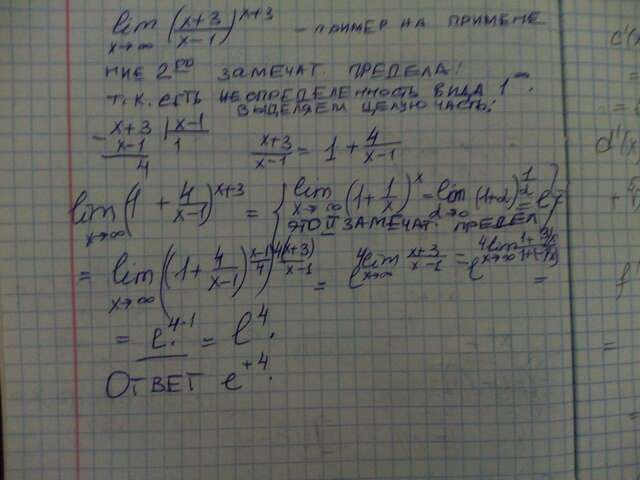 lim x→∞ (x+3/x-1)^x+3 - ПРИМЕР НА ПРИМЕНЕ
НИЕ 2го ЗАМЕЧАТ. ПРЕДЕЛА!
Т.К. ЕСТЬ НЕОПРЕДЕЛЕННОСТЬ ВИДА 1^∞.
ВЫДЕЛЯЕМ ЦЕЛУЮ ЧАСТЬ:
- x+3 | x-1 x+3/x-1 = 1 + 4/x-1
x-1 1
4
lim x→∞ (1 + 4/x-1)^x+3 = { lim x→∞ (1+1/x)^x = lim α→0 (1+α)^1/α = e }
ЭТО II ЗАМЕЧАТ. ПРЕДЕЛ
= lim x→∞ ((1+4/x-1)^x-1/4)^4(x+3)/x-1 = e^4 lim x→∞ x+3/x-1 = e^4 lim x→∞ 1+3/x/1+(-1/x) =
= e^4·1 = e^4.
ОТВЕТ e^+4.
c'(x
=
= 
d'(x
+
=
f'
=